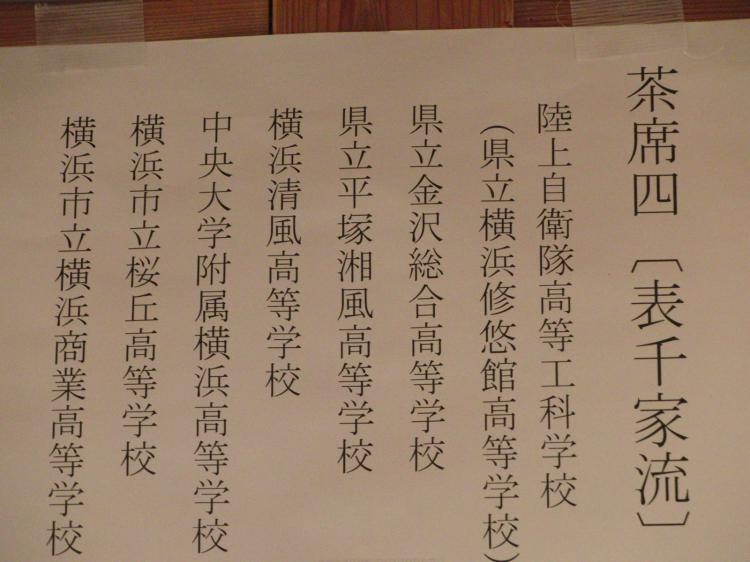 茶席四〔表千家流〕
陸上自衛隊高等工科学校
(県立横浜修悠館高等学校)
県立金沢総合高等学校
県立平塚湘風高等学校
横浜清風高等学校
中央大学附属横浜高等学校
横浜市立桜丘高等学校
横浜市立横浜商業高等学校